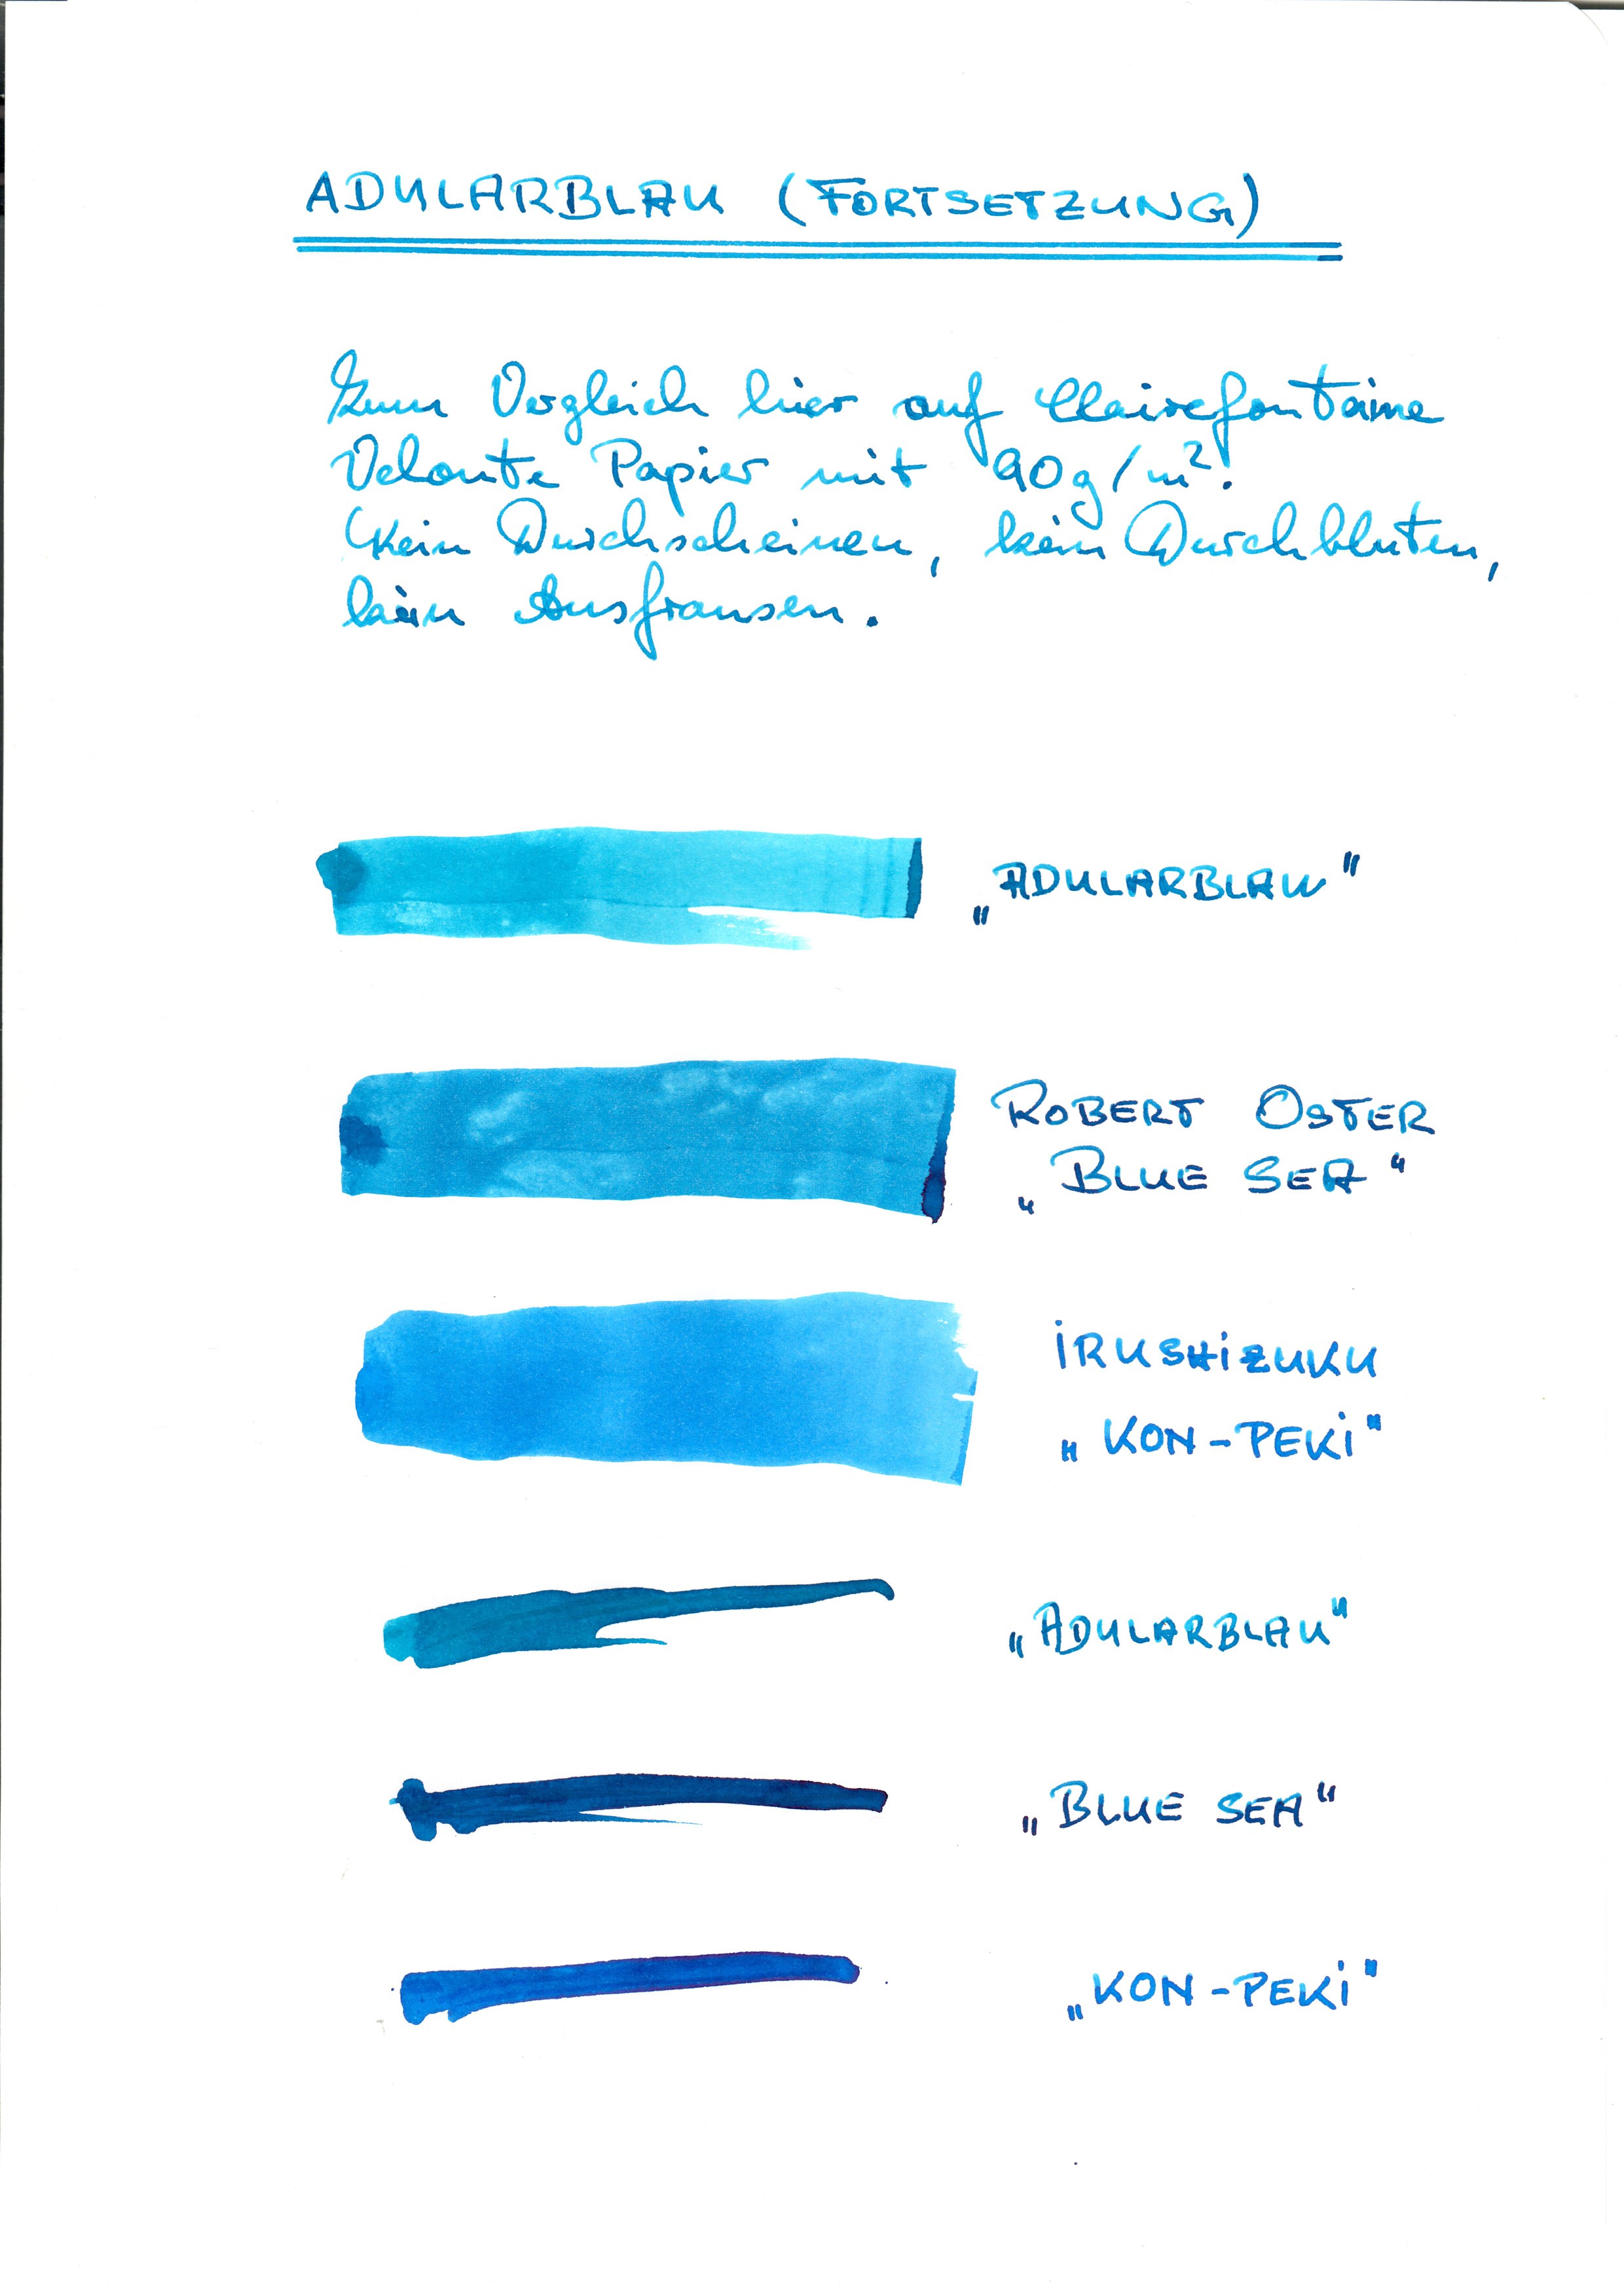 ADULARBLAU (FORTSETZUNG)
Zum Vergleich hier auf Clairefontaine
Veloute Papier mit 90g/m².
Kein Durchscheinen, kein Durchbluten,
kein Ausfransen.
„ADULARBLAU"
ROBERT OSTER
„BLUE SEA"
IRUSHIZUKU
„KON-PEKI"
„ADULARBLAU"
„BLUE SEA"
„KON-PEKI"